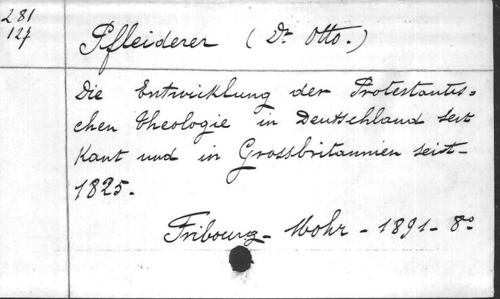 281
127
Pfleiderer (Dr Otto.)
Die Entwicklung der Protestantis=
chen Theologie in Deutschland seit
Kant und in Grossbritannien seit-
1825.
Fribourg - Mohr - 1891 - 8º